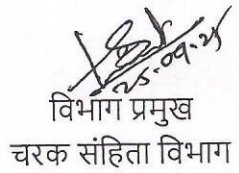 25.09.25
विभाग प्रमुख
चरक संहिता विभाग